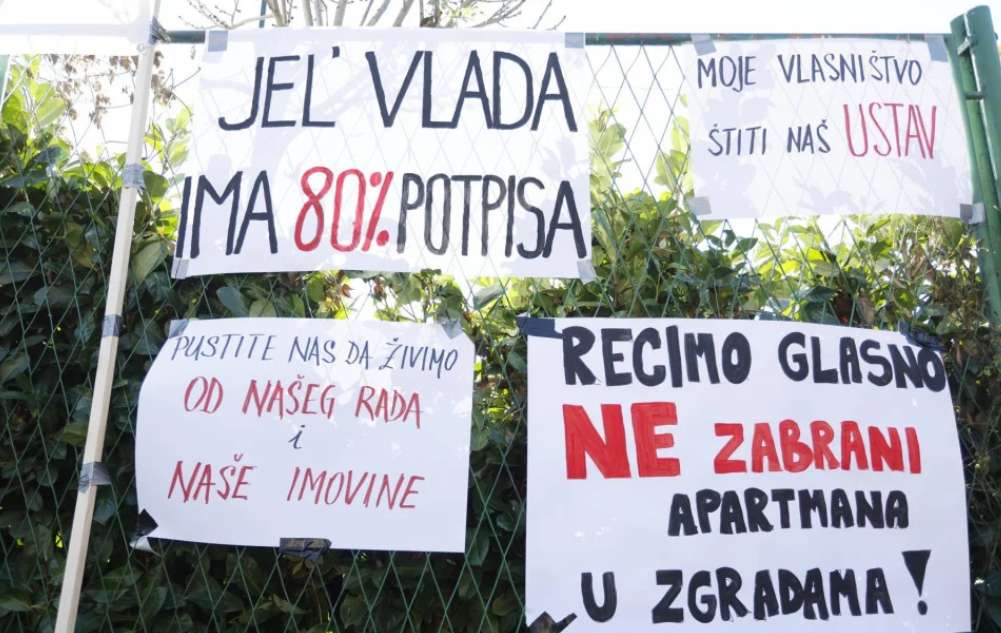 JEL' VLADA
IMA 80% POTPISA
MOJE VLASNIŠTVO
ŠTITI NAŠ USTAV
PUSTITE NAS DA ŽIVIMO
OD NAŠEG RADA
i
NAŠE IMOVINE
RECIMO GLASNO
NE ZABRANI
APARTMANA
U ZGRADAMA!